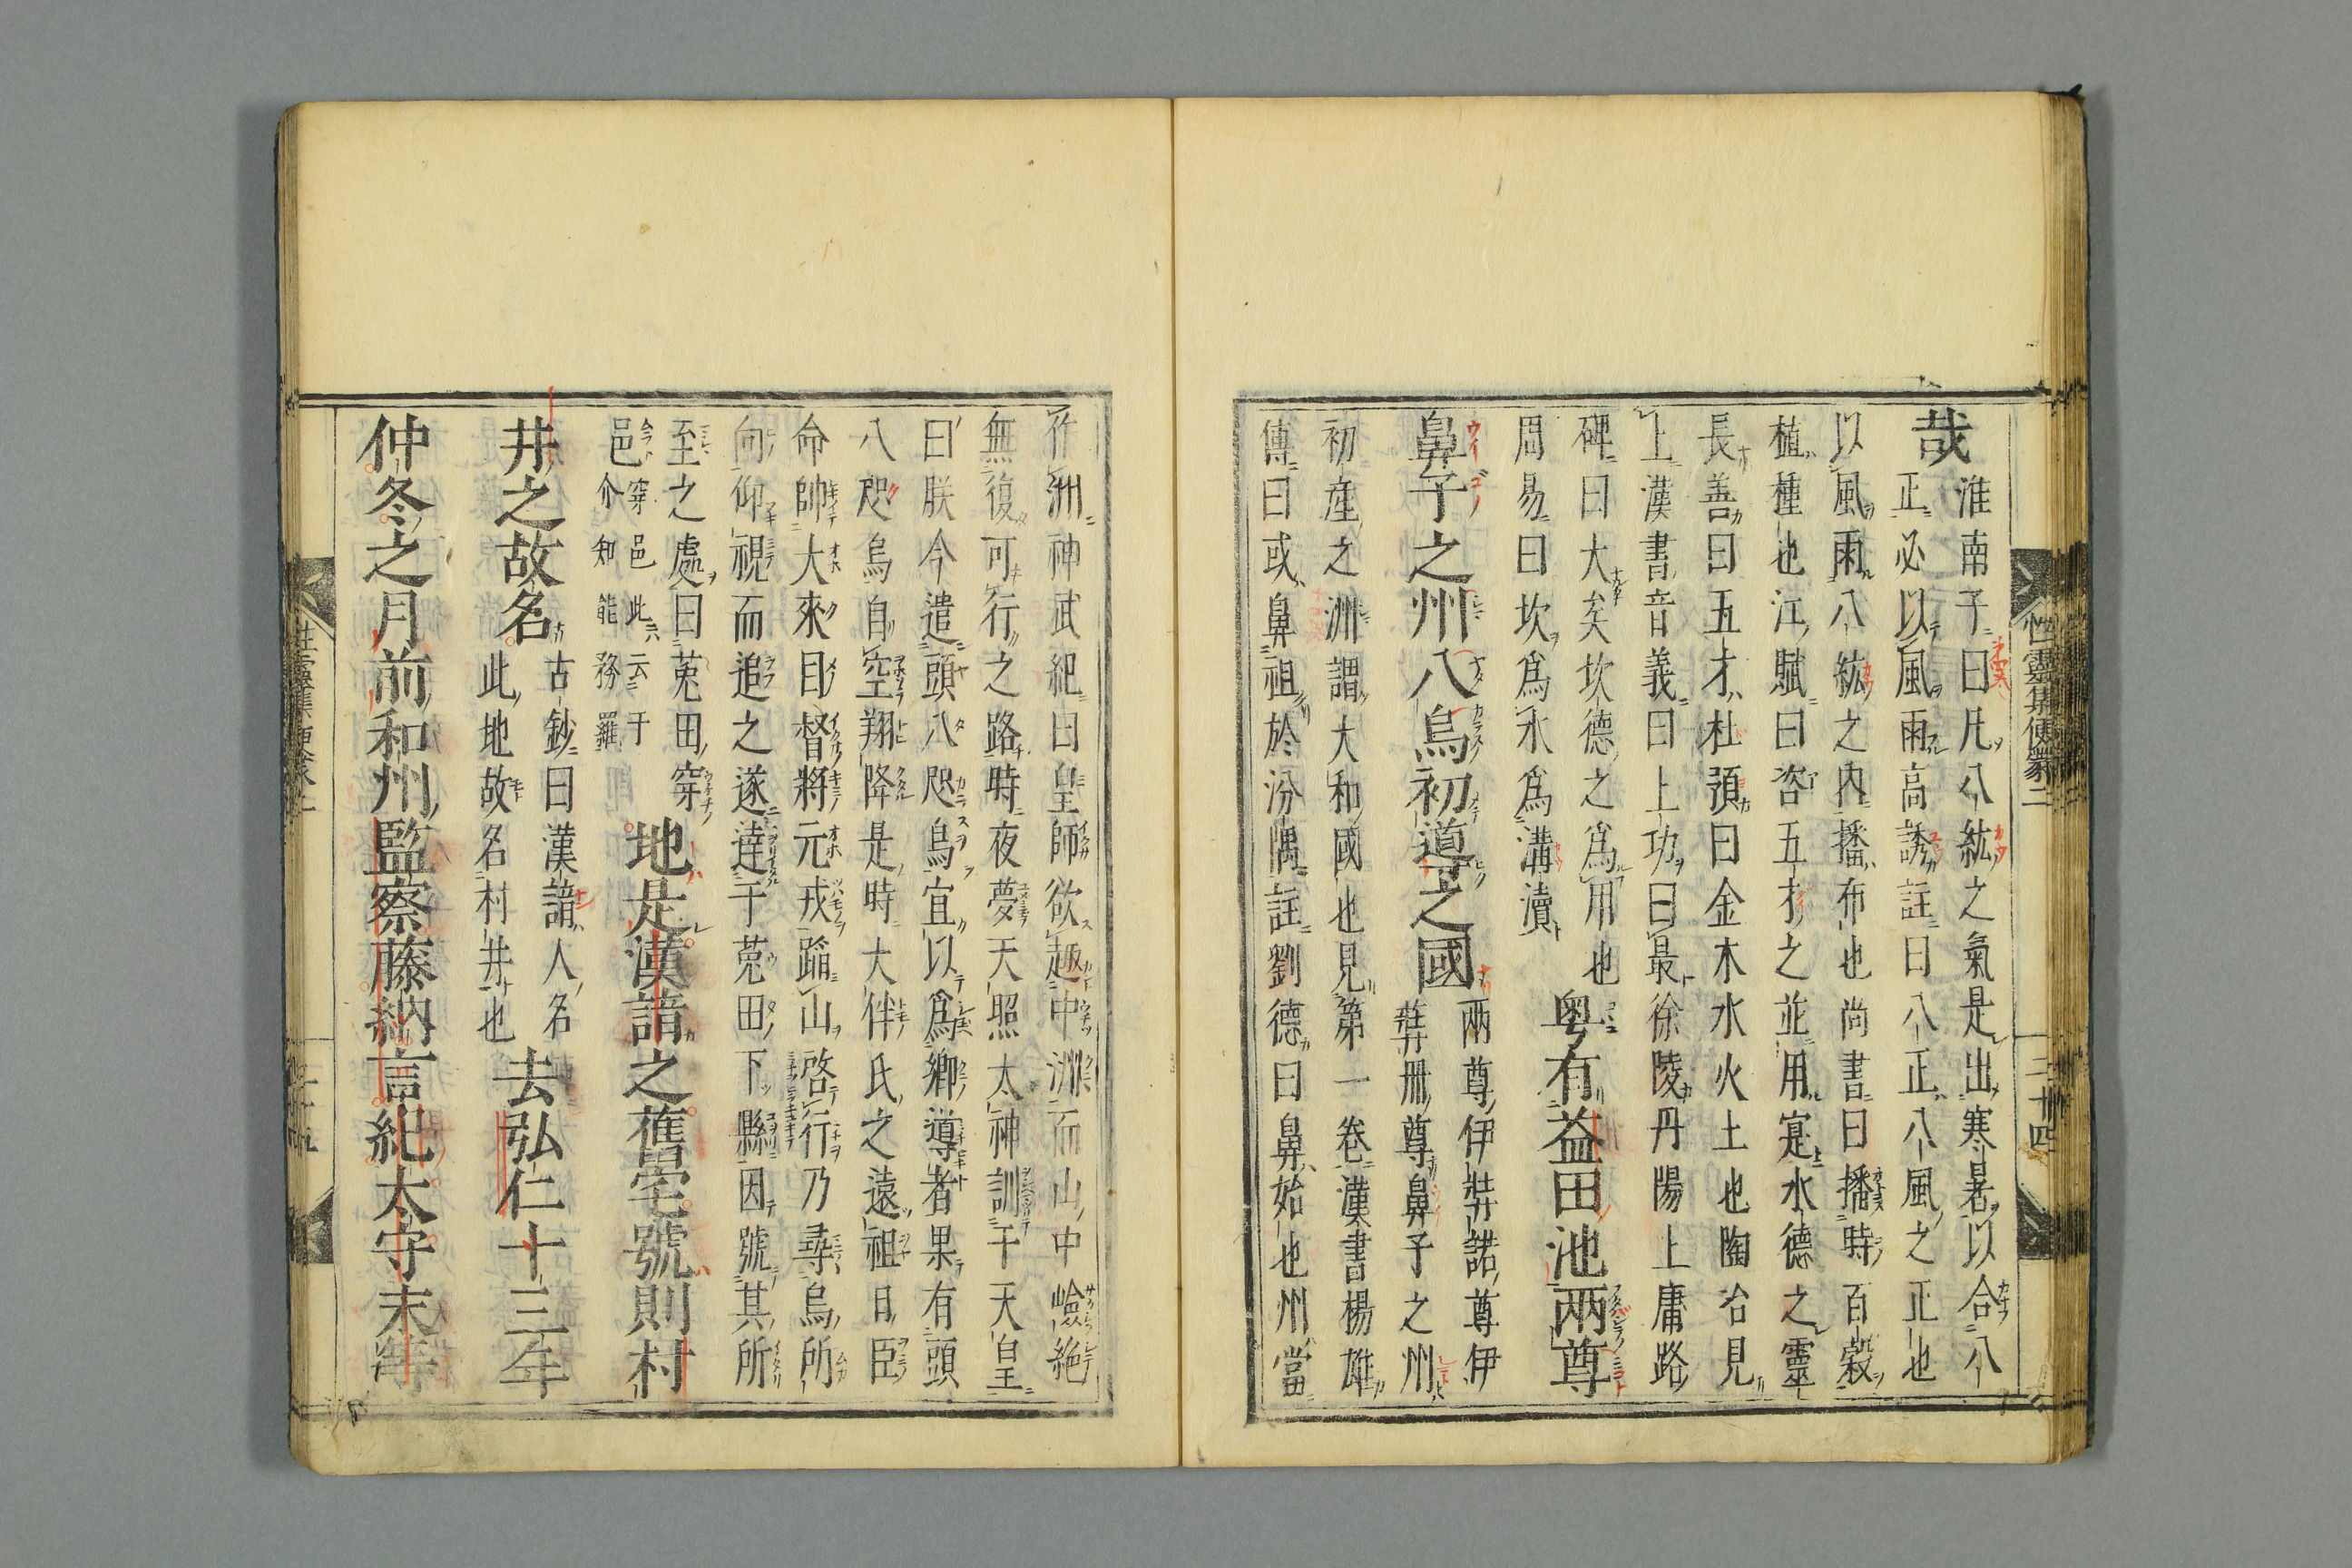 哉
淮南子曰凡八紘之氣是出寒暑以合八
正必以風雨高誘註曰八正八風之正也
以風雨八紘之内播布也尚書曰播時百穀
植種也江賦曰咨五才之並用寔水德之靈
長善曰五才杜預曰金木水火土也陶冶見
上漢書音義曰上功曰最徐陵丹陽上庸路
碑曰大矣坎德之爲用也
周易曰坎爲水爲溝瀆
粤有益田池兩尊
鼻子之州八烏初導之國
兩尊伊弉諾尊伊
弉冊尊鼻子之州
初産之洲謂大和國也見第一卷漢書楊雄
傳曰或鼻祖於汾隅註劉德曰鼻始也州當
作洲神武紀曰皇師欲趣中洲而山中嶮絶
無復可行之路時夜夢天照太神訓于天皇
曰朕今遣頭八咫烏宜以爲郷導者果有頭
八咫烏自空翔降是時大伴氏之遠祖日臣
命帥大來目督將元戎蹈山啓行乃尋烏所
向仰視而追之遂達于菟田下縣因號其所
至之處曰菟田穿
邑
穿邑此云于
介知能務羅
地是漢諳之舊宅號則村
井之故名
古鈔曰漢諳人名
此地故名村井也
去弘仁十三年
仲冬之月前和州監察藤納言紀太守末等
性靈集便蒙二
三十四